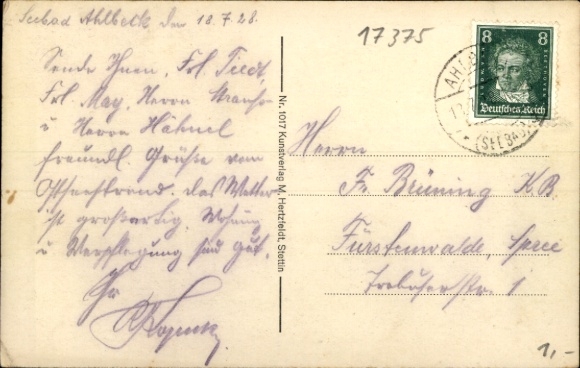 Seebad Ahlbeck den 18.7.28.
Sende Ihnen, Frl. Tiedt,
Frl. May, Herrn
u Herrn Hähnel
freundl. Grüße vom
Ostseestrand. das Wetter
ist großartig. Wohnung
u Verpflegung sind gut.
Ihr
Nr. 1017 Kunstverlag M. Hertzfeldt, Stettin
17375
8 8
Deutsches Reich
(SEEBAD)
Herrn
Fr. Brüning K.B.
Fürstenwalde, Spree
Trebuserstr. 1
1,-